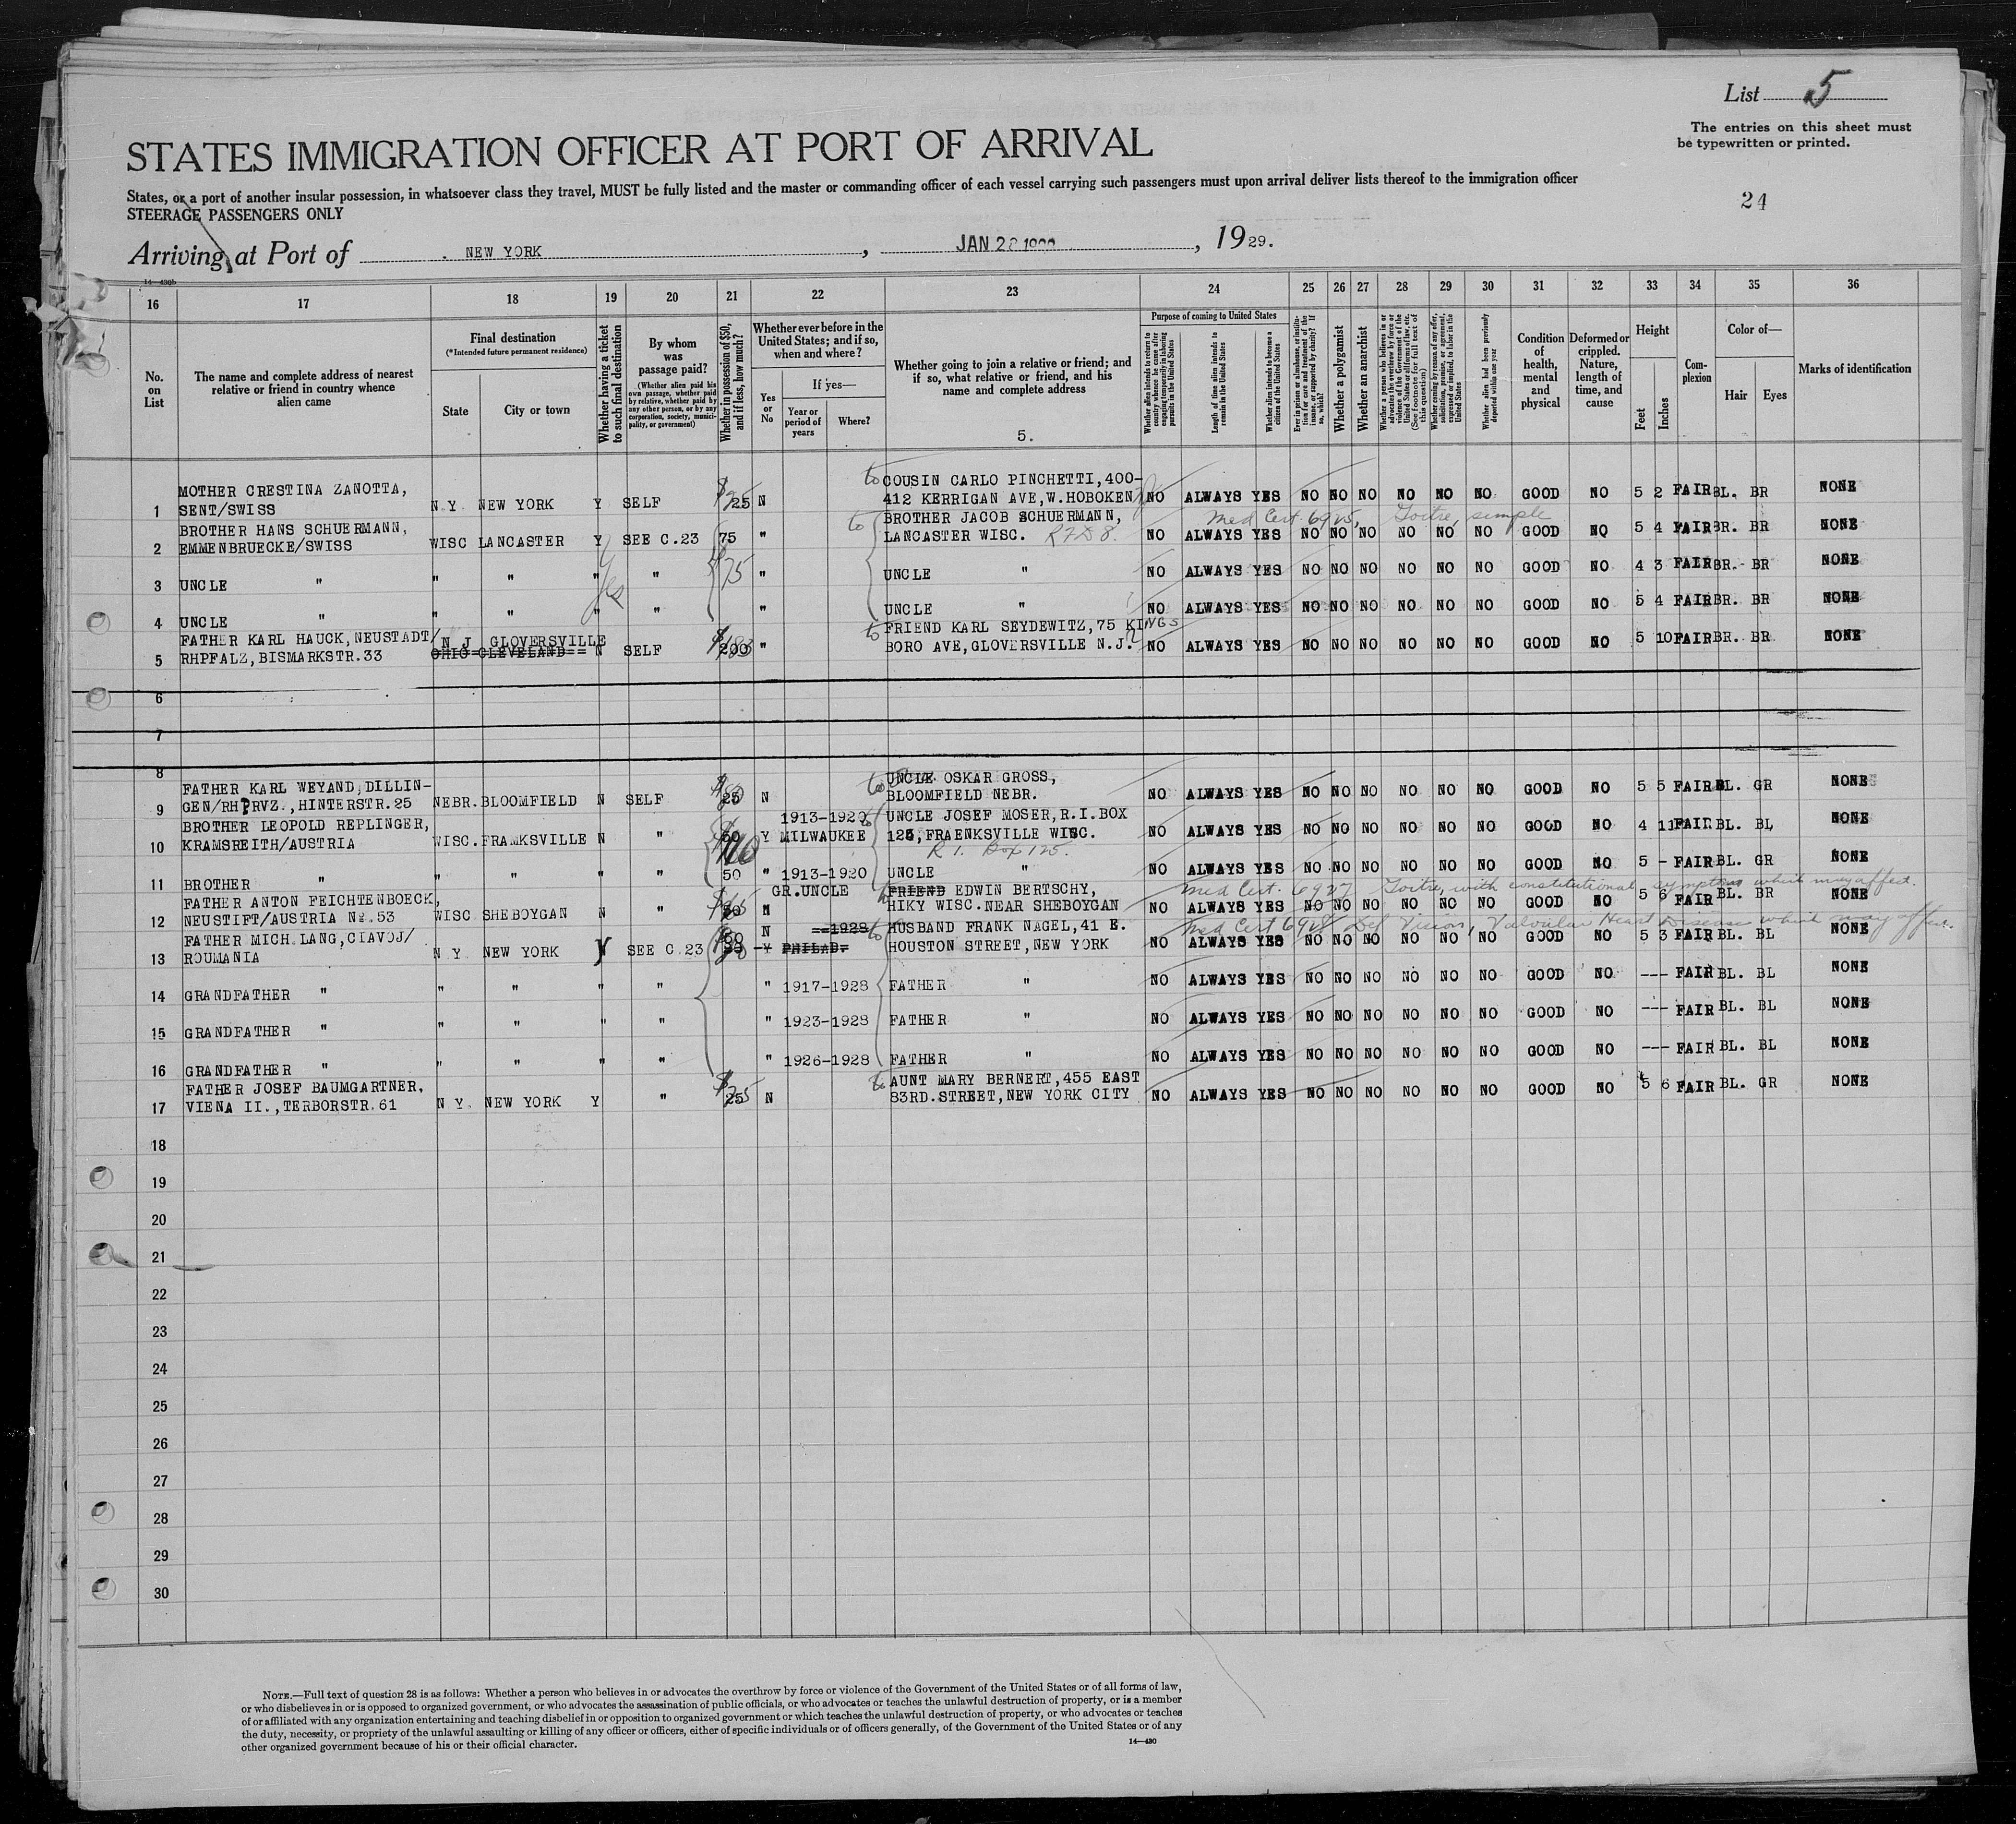 List 5
The entries on this sheet must
be typewritten or printed.
STATES IMMIGRATION OFFICER AT PORT OF ARRIVAL
States, or a port of another insular possession, in whatsoever class they travel, MUST be fully listed and the master or commanding officer of each vessel carrying such passengers must upon arrival deliver lists thereof to the immigration officer
STEERAGE PASSENGERS ONLY
24
Arriving at Port of NEW YORK, JAN 28, 1929.
16 17 18 19 20 21 22 23 24 25 26 27 28 29 30 31 32 33 34 35 36
No. on List
The name and complete address of nearest relative or friend in country whence alien came
Final destination
(*Intended future permanent residence)
State
City or town
Whether having a ticket to such final destination
By whom was passage paid?
(Whether alien paid his own passage, whether paid by relative, whether paid by any other person, or by any corporation, society, municipality, or government)
Whether in possession of $50, and if less, how much?
Whether ever before in the United States; and if so, when and where?
Yes or No
If yes—
Year or period of years
Where?
Whether going to join a relative or friend; and if so, what relative or friend, and his name and complete address
5.
Purpose of coming to United States
Whether alien intends to return to country whence he came after engaging temporarily in laboring pursuits in the United States
Length of time alien intends to remain in the United States
Whether alien intends to become a citizen of the United States
Ever in prison or almshouse, or institution for care and treatment of the insane, or supported by charity? If so, which?
Whether a polygamist
Whether an anarchist
Whether a person who believes in or advocates the overthrow by force or violence of the Government of the United States or all forms of law, etc. (See footnote for full text of this question)
Whether coming by reason of any offer, solicitation, promise, or agreement, expressed or implied, to labor in the United States
Whether alien had been previously deported within one year
Condition of health, mental and physical
Deformed or crippled. Nature, length of time, and cause
Height
Feet
Inches
Complexion
Color of—
Hair
Eyes
Marks of identification
MOTHER CRESTINA ZANOTTA, to COUSIN CARLO PINCHETTI,400-
1 SENT/SWISS N Y NEW YORK Y SELF $25 25 N 412 KERRIGAN AVE,W.HOBOKEN NO ALWAYS YES NO NO NO NO NO NO GOOD NO 5 2 FAIR BL. BR NONE
BROTHER HANS SCHUERMANN, to BROTHER JACOB SCHUERMANN, Med Cert 6925, Goitre, simple
2 EMMENBRUECKE/SWISS WISC LANCASTER Y SEE C.23 75 " LANCASTER WISC. RFD 8. NO ALWAYS YES NO NO NO NO NO NO GOOD NO 5 4 FAIR BR. BR NONE
3 UNCLE " " " " " $75 " UNCLE " NO ALWAYS YES NO NO NO NO NO NO GOOD NO 4 3 FAIR BR. BR NONE
Yes
4 UNCLE " " " " " " UNCLE " NO ALWAYS YES NO NO NO NO NO NO GOOD NO 5 4 FAIR BR. BR NONE
FATHER KARL HAUCK,NEUSTADT/ N J GLOVERSVILLE to FRIEND KARL SEYDEWITZ,75 KINGS
5 RHPFALZ,BISMARKSTR.33 OHIO CLEVELAND N SELF $183 200 " BORO AVE,GLOVERSVILLE N.J. NO ALWAYS YES NO NO NO NO NO NO GOOD NO 5 10 FAIR BR. BR NONE
6
7
8
FATHER KARL WEYAND,DILLIN- to UNCLE OSKAR GROSS,
9 GEN/RHPRVZ.,HINTERSTR.25 NEBR. BLOOMFIELD N SELF 25 N BLOOMFIELD NEBR. NO ALWAYS YES NO NO NO NO NO NO GOOD NO 5 5 FAIR BL. GR NONE
BROTHER LEOPOLD REPLINGER, 1913-1920 to UNCLE JOSEF MOSER,R.I.BOX
10 KRAMSREITH/AUSTRIA WISC. FRAMKSVILLE N " 50 Y MILWAUKEE 125,FRAENKSVILLE WISC. NO ALWAYS YES NO NO NO NO NO NO GOOD NO 4 11 FAIR BL. BL NONE
R 1. Box 125.
11 BROTHER " " " " " 50 " 1913-1920 UNCLE " NO ALWAYS YES NO NO NO NO NO NO GOOD NO 5 - FAIR BL. GR NONE
FATHER ANTON FEICHTENBOECK, GR.UNCLE FRIEND EDWIN BERTSCHY, Med Cert. 6927 Goitre, with constitutional symptoms which may affect.
12 NEUSTIFT/AUSTRIA No.53 WISC SHEBOYGAN N " N HIKY WISC.NEAR SHEBOYGAN NO ALWAYS YES NO NO NO NO NO NO GOOD NO 5 6 FAIR BL. BR NONE
FATHER MICH.LANG,CIAVOJ/ 50 N 1928 to HUSBAND FRANK NAGEL,41 E. Med Cert 6928 Def Vision, Valvular Heart Disease which may affect.
13 ROUMANIA N Y NEW YORK Y SEE C.23 Y PHILAD. HOUSTON STREET,NEW YORK NO ALWAYS YES NO NO NO NO NO NO GOOD NO 5 3 FAIR BL. BL NONE
14 GRANDFATHER " " " " " " 1917-1928 FATHER " NO ALWAYS YES NO NO NO NO NO NO GOOD NO --- FAIR BL. BL NONE
15 GRANDFATHER " " " " " " 1923-1928 FATHER " NO ALWAYS YES NO NO NO NO NO NO GOOD NO --- FAIR BL. BL NONE
16 GRANDFATHER " " " " " " 1926-1928 FATHER " NO ALWAYS YES NO NO NO NO NO NO GOOD NO --- FAIR BL. BL NONE
FATHER JOSEF BAUMGARTNER, to AUNT MARY BERNERT,455 EAST
17 VIENA II.,TERBORSTR.61 N Y. NEW YORK Y " $25 25 N 83RD.STREET,NEW YORK CITY NO ALWAYS YES NO NO NO NO NO NO GOOD NO 5 6 FAIR BL. GR NONE
18
19
20
21
22
23
24
25
26
27
28
29
30
NOTE.—Full text of question 28 is as follows: Whether a person who believes in or advocates the overthrow by force or violence of the Government of the United States or of all forms of law,
or who disbelieves in or is opposed to organized government, or who advocates the assassination of public officials, or who advocates or teaches the unlawful destruction of property, or is a member
of or affiliated with any organization entertaining and teaching disbelief in or opposition to organized government or which teaches the unlawful destruction of property, or who advocates or teaches
the duty, necessity, or propriety of the unlawful assaulting or killing of any officer or officers, either of specific individuals or of officers generally, of the Government of the United States or of any
other organized government because of his or their official character.
14—430